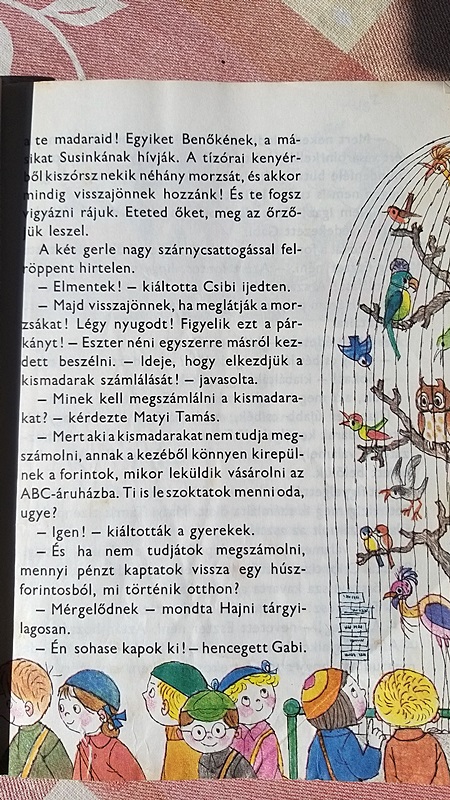 a te madaraid! Egyiket Benőkének, a má-
sikat Susinkának hívják. A tízórai kenyér-
ből kiszórsz nekik néhány morzsát, és akkor
mindig visszajönnek hozzánk! És te fogsz
vigyázni rájuk. Eteted őket, meg az őrző-
jük leszel.
A két gerle nagy szárnycsattogással fel-
röppent hirtelen.
– Elmentek! – kiáltotta Csibi ijedten.
– Majd visszajönnek, ha meglátják a mor-
zsákat! Légy nyugodt! Figyelik ezt a pár-
kányt! – Eszter néni egyszerre másról kez-
dett beszélni. – Ideje, hogy elkezdjük a
kismadarak számlálását! – javasolta.
– Minek kell megszámlálni a kismadara-
kat? – kérdezte Matyi Tamás.
– Mert aki a kismadarakat nem tudja meg-
számolni, annak a kezéből könnyen kirepül-
nek a forintok, mikor leküldik vásárolni az
ABC-áruházba. Ti is leszoktatok menni oda,
ugye?
– Igen! – kiáltották a gyerekek.
– És ha nem tudjátok megszámolni,
mennyi pénzt kaptatok vissza egy húsz-
forintosból, mi történik otthon?
– Mérgelődnek – mondta Hajni tárgyi-
lagosan.
– Én sohase kapok ki! – hencegett Gabi.